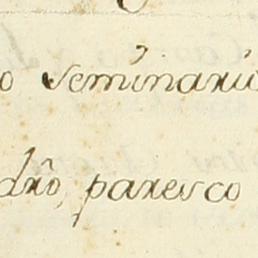 o Seminari
drõ, paresco